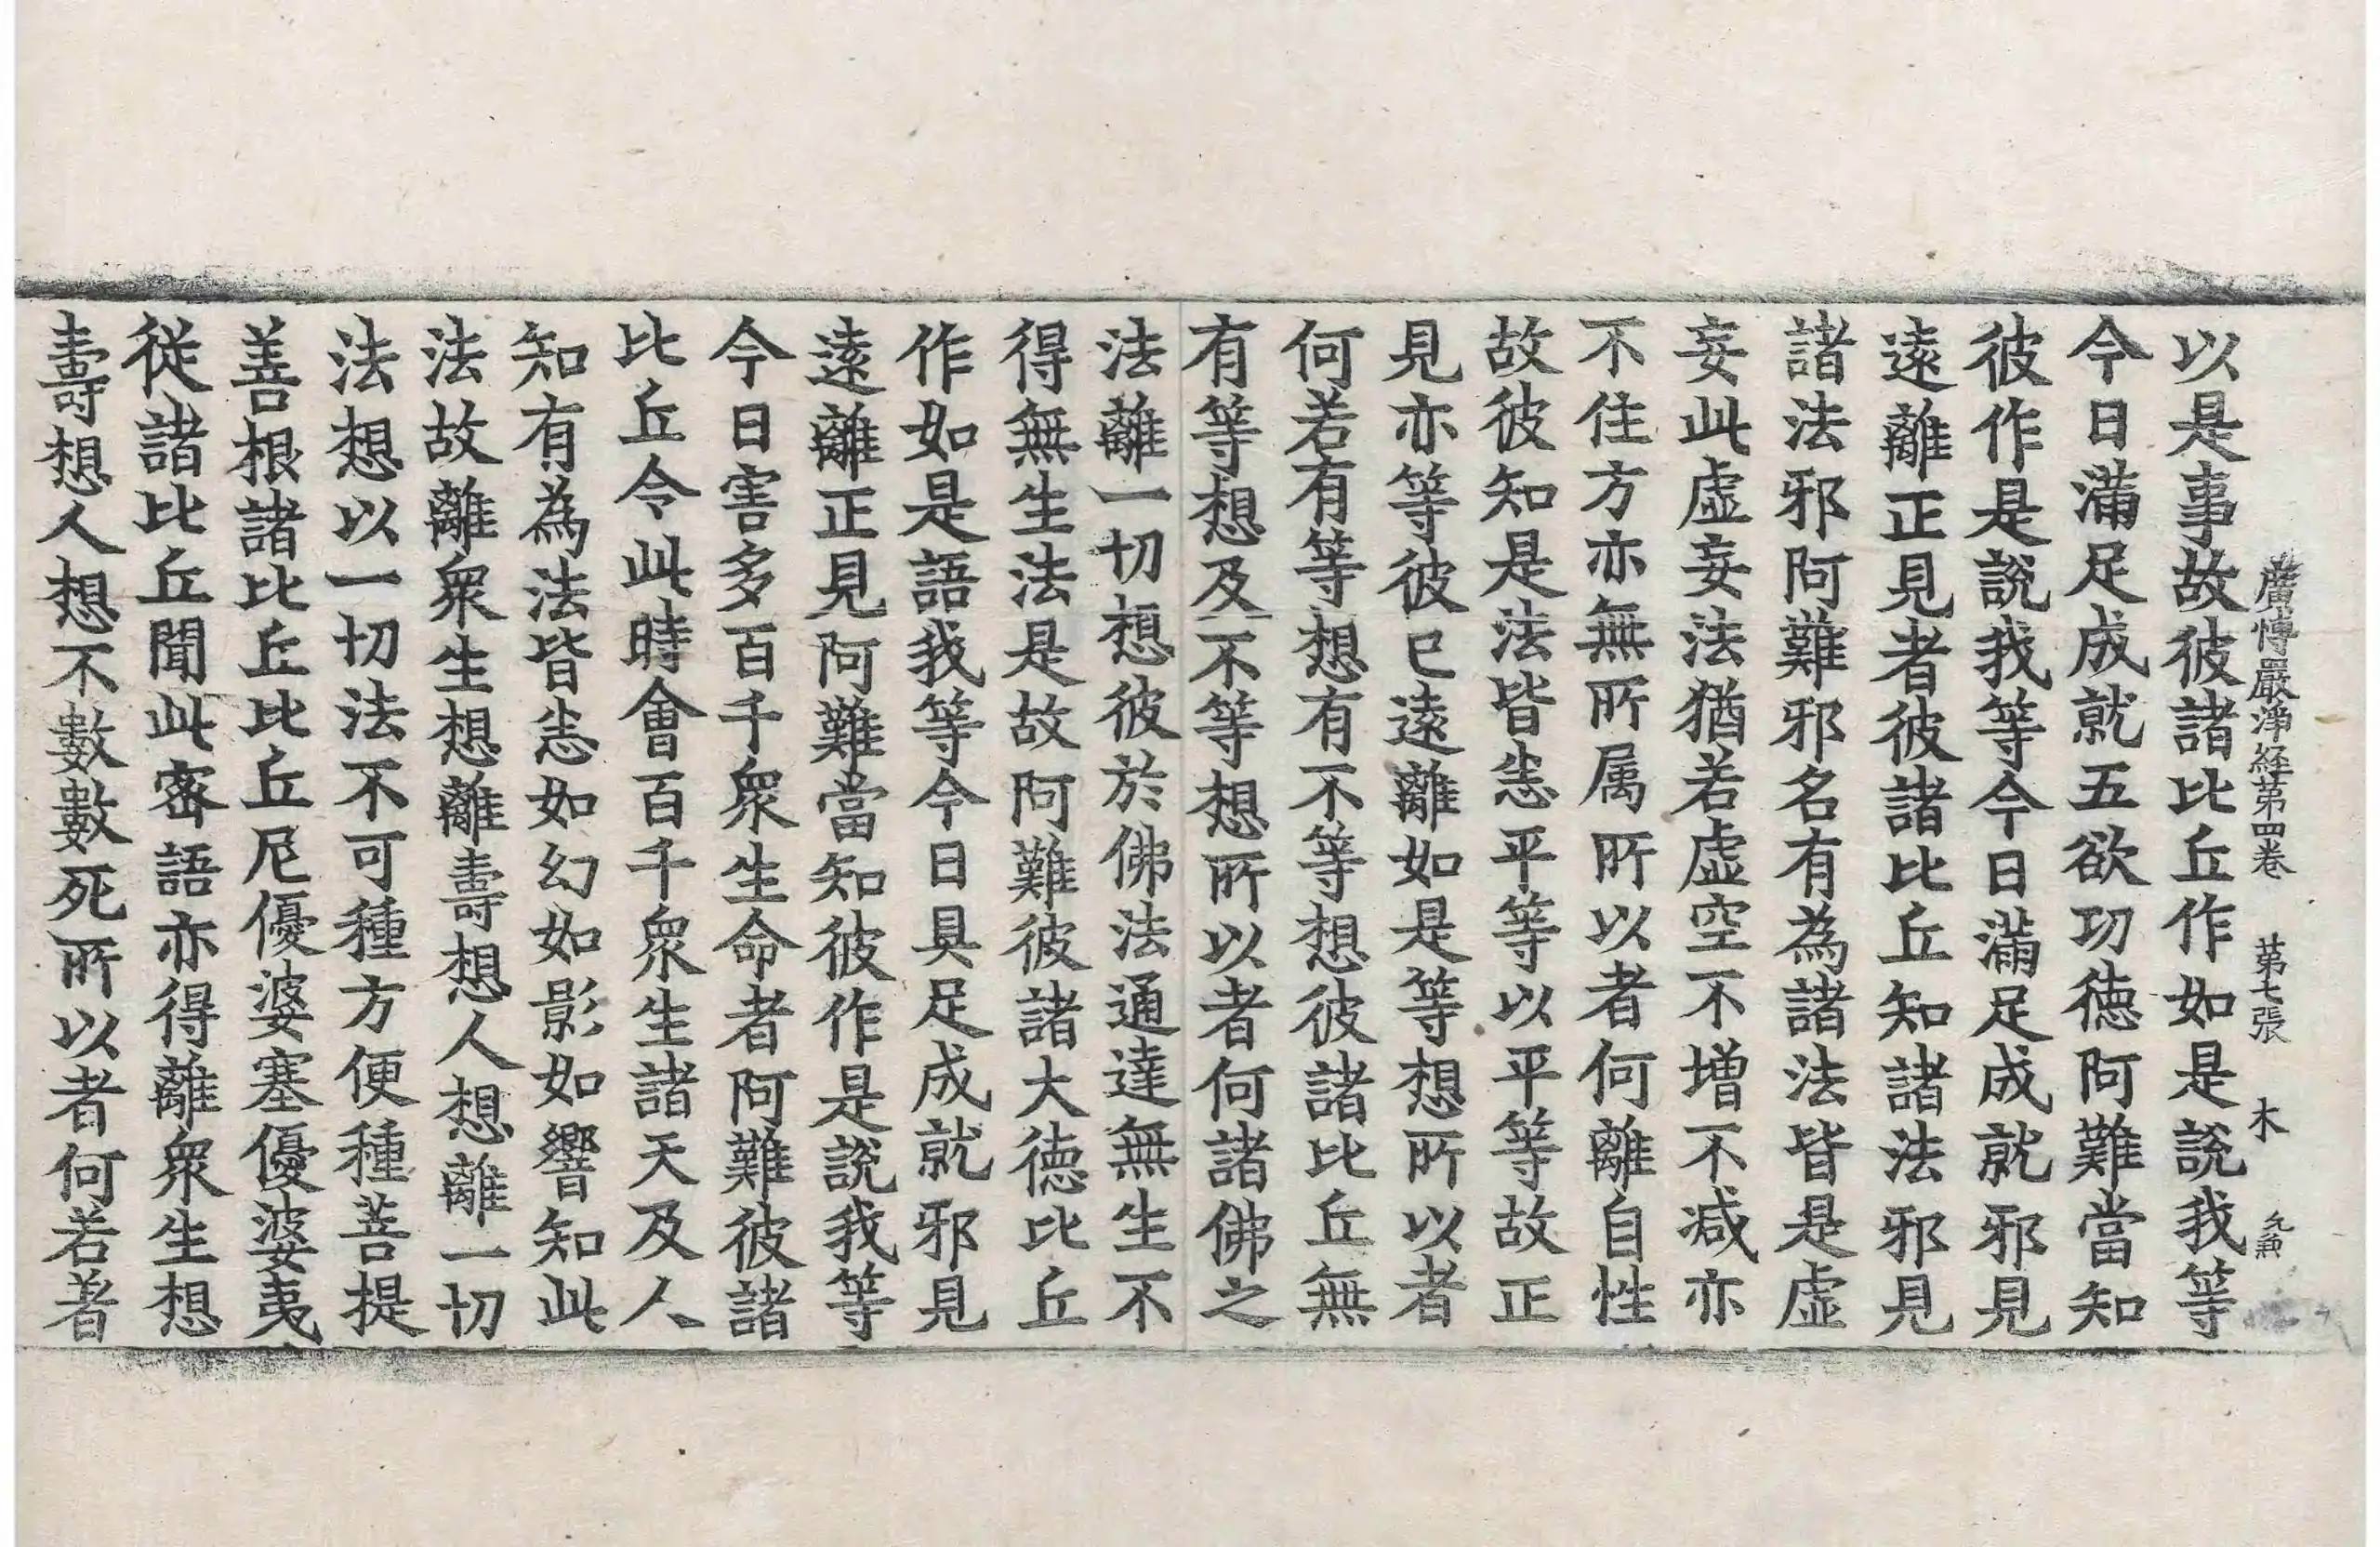 廣博嚴淨経第四卷 第七張 木
以是事故彼諸比丘作如是說我等
今日滿足成就五欲功徳阿難當知
彼作是說我等今日滿足成就邪見
遠離正見者彼諸比丘知諸法邪見
諸法邪阿難邪名有為諸法皆是虛
妄此虛妄法猶若虛空不增不減亦
不住方亦無所属所以者何離自性
故彼知是法皆悉平等以平等故正
見亦等彼已遠離如是等想所以者
何若有等想有不等想彼諸比丘無
有等想及不等想所以者何諸佛之
法離一切想彼於佛法通達無生不
得無生法是故阿難彼諸大徳比丘
作如是語我等今日具足成就邪見
遠離正見阿難當知彼作是說我等
今日害多百千衆生命者阿難彼諸
比丘令此時會百千衆生諸天及人
知有為法皆悉如幻如影如響知此
法故離衆生想離壽想人想離一切
法想以一切法不可種方便種菩提
善根諸比丘比丘尼優婆塞優婆夷
從諸比丘聞此密語亦得離衆生想
壽想人想不數數死所以者何若著